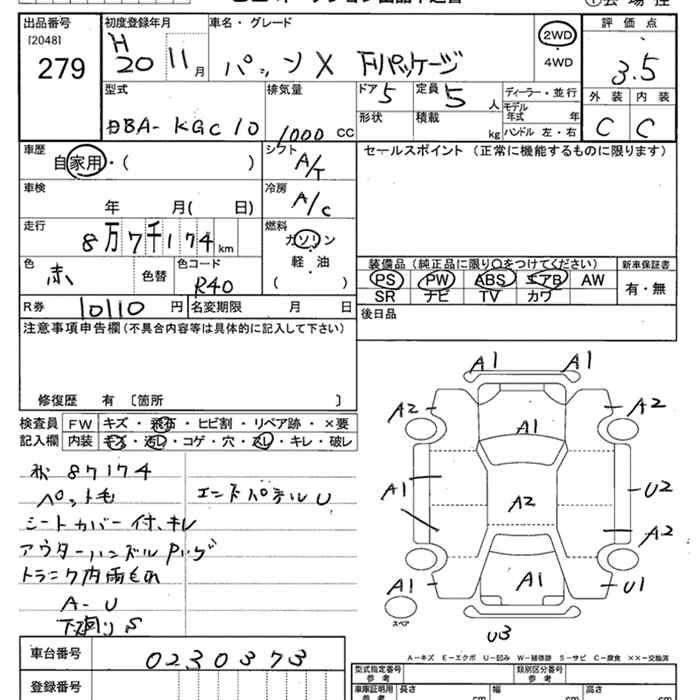 出品番号
[2048]
279
初度登録年月
H
20 11月
車名・グレード
パッソ X Fパッケージ
2WD
・
4WD
評価点
3.5
外装 内装
C C
型式
DBA-KGC10
排気量
1000 CC
ドア 5
定員 5人
形状
積載 kg
ディーラー・並行
モデル
年式 年
ハンドル 左・右
車歴
自家用・( )
シフト
A/T
セールスポイント (正常に機能するものに限ります)
車検
年 月( 日)
冷房
A/C
走行
8万7千174km
燃料
ガソリン
軽・油
( )
色
赤
色替
色コード
R40
装備品(純正品に限り○をつけてください)
PS PW ABS エアB AW
SR ナビ TV カワ
新車保証書
有・無
R券 10110円
名変期限 月 日
後日品
注意事項申告欄(不具合内容等は具体的に記入して下さい)
修復歴 有〔箇所 〕
検査員
記入欄
FW キズ・飛石・ヒビ割・リペア跡・×要
内装 キズ・汚レ・コゲ・穴・スレ・キレ・破レ
87174
ペット毛
エンドパネルU
シートカバー付、キレ
アウターハンドル
トランク内雨もれ
A-U
下廻りS
A1 A1
A2 A2
A1
A1 A2 U2
A2
A1 A1 U1
スペア
U3
A-キズ E-エクボ U-凹み W-補修跡 S-サビ C-腐食 ××-交換済
車台番号
0230373
登録番号
型式指定番号
参考
類別区分番号
参考
車庫証明用
参考
長さ cm
幅 cm
高さ cm